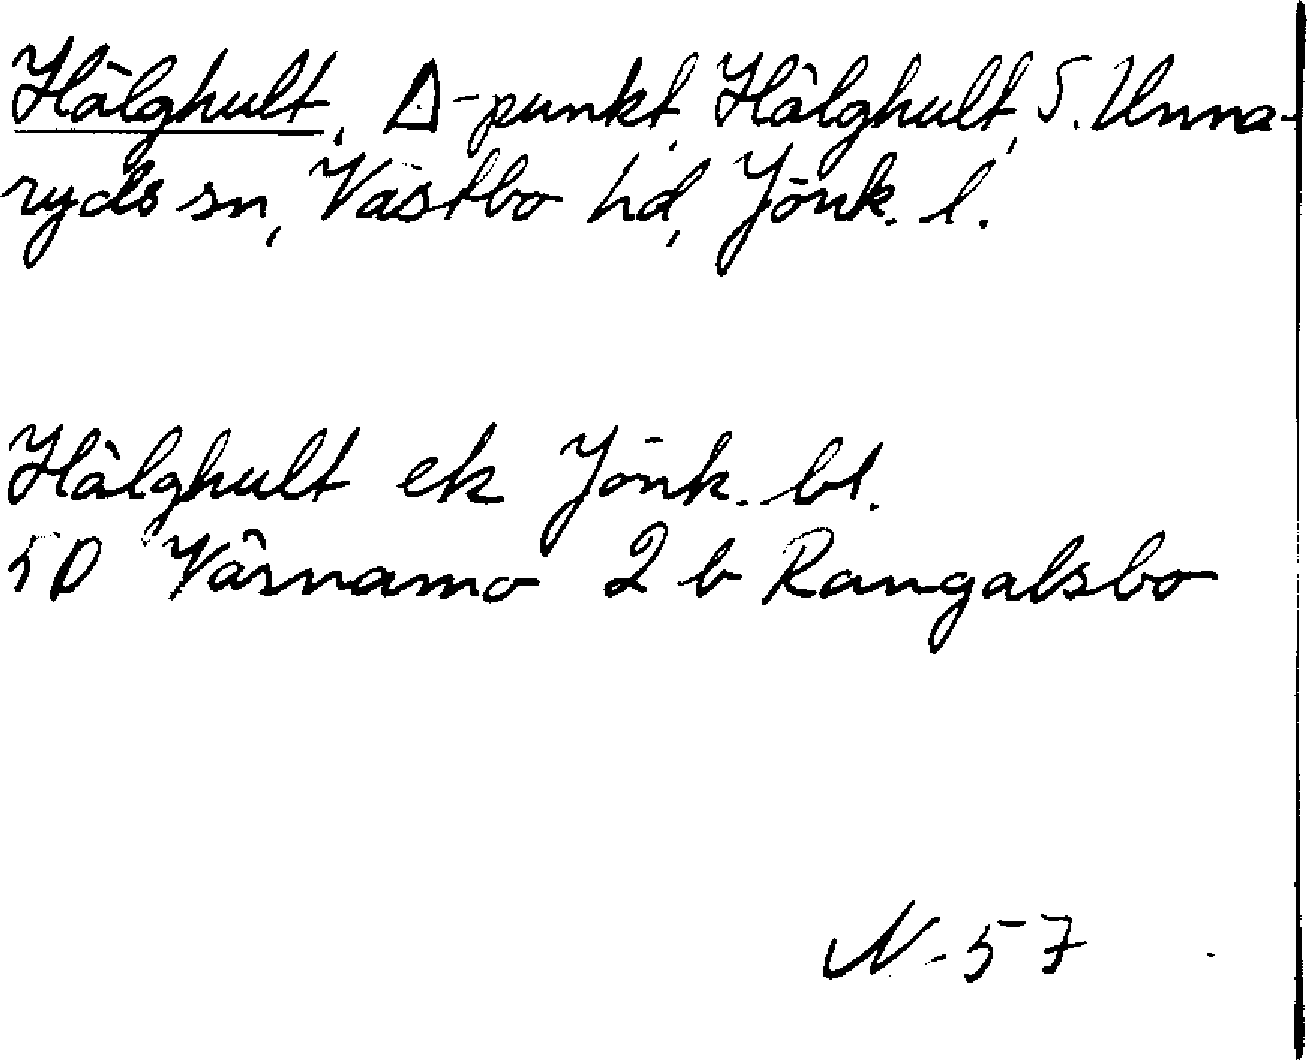 Hälghult, Δ-punkt, Hälghult, S. Unna-
ryds sn, Västbo hd, Jönk. l.
Hälghult ek Jönk. bl.
5D Värnamo 2 b Rangalsbo
N-57